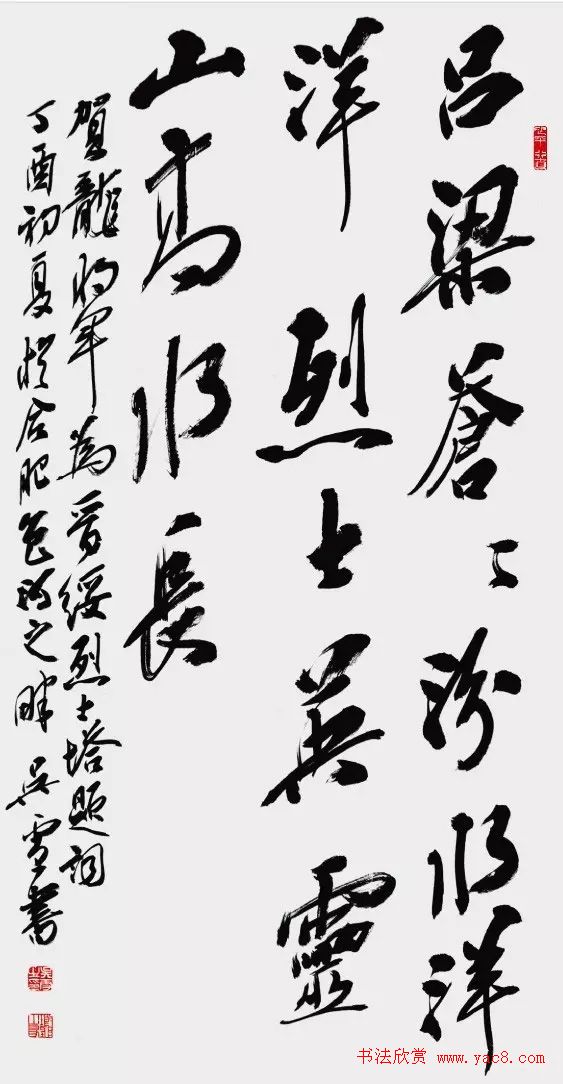 吕梁蒼〻汾水洋
洋烈士英靈
山高水長
賀龍將軍為晋綏烈士塔題詞
丁酉初夏於合肥包河之畔吴雪書
书法欣赏 www.yac8.com